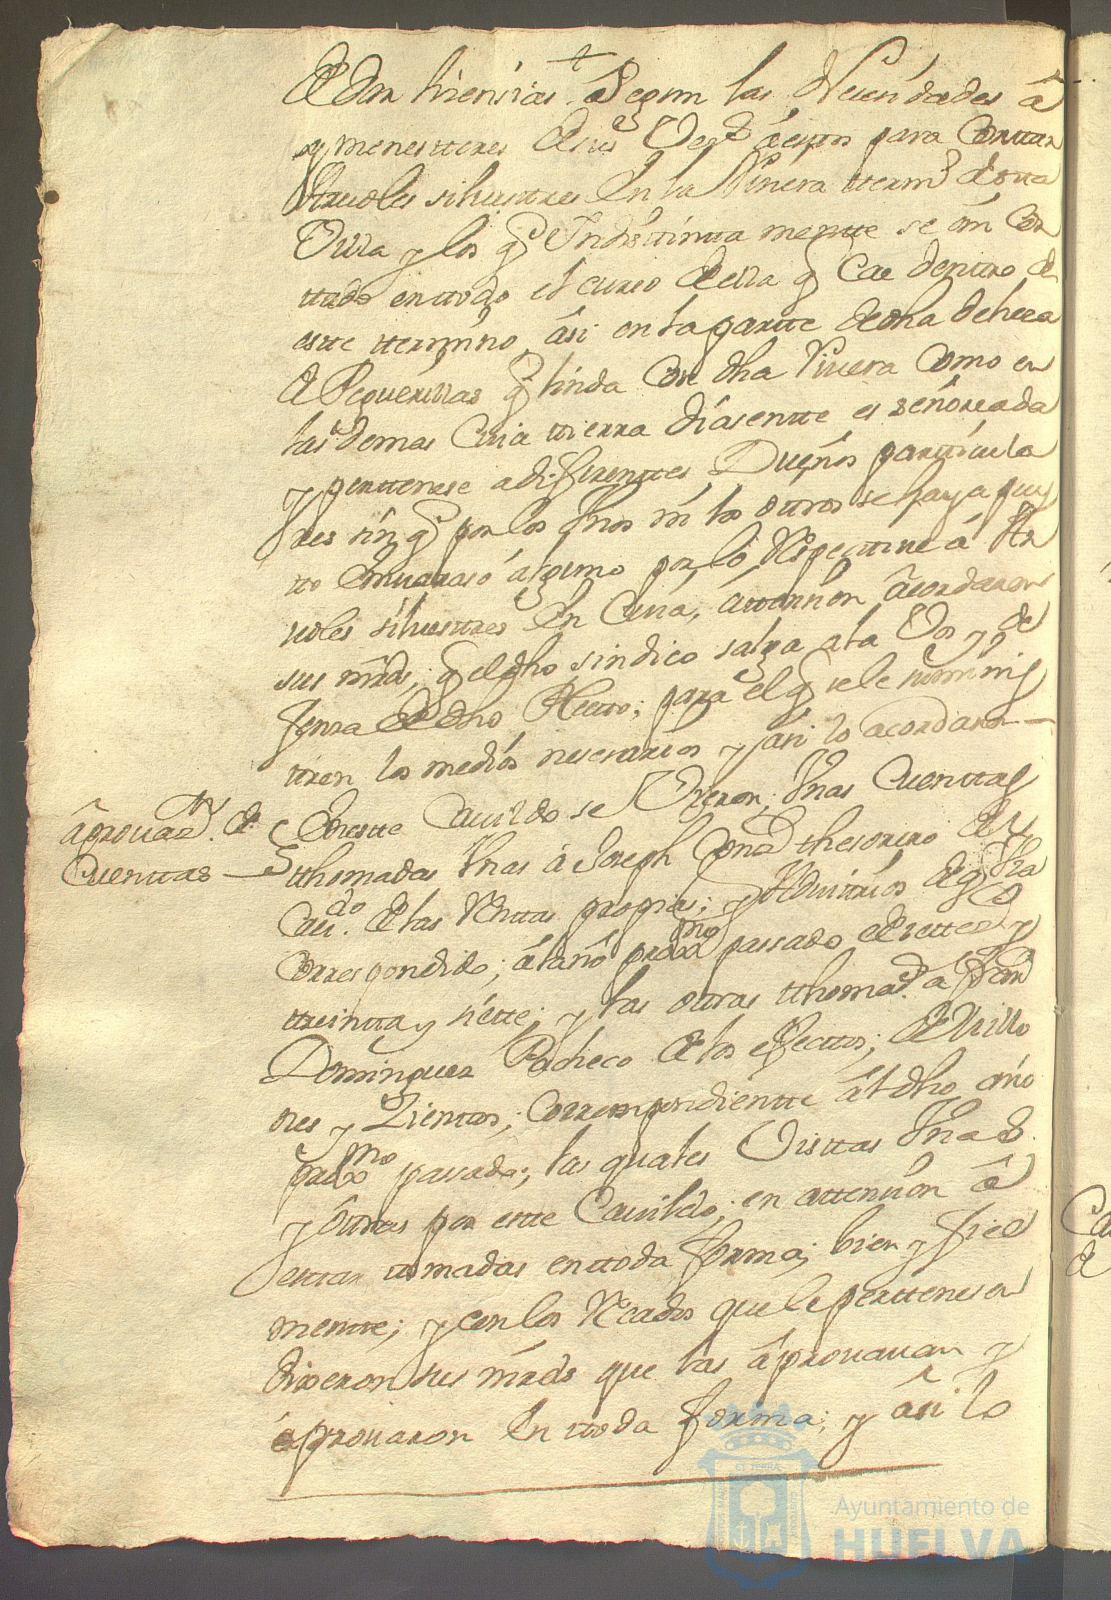 de dar lisensias segun las Nesesidades â
y menestteres de sus Vezos â estos para Corttar
Arvoles silvestres En la Rivera ttermo de esta
Villa y los q Indistintta mentte se an Cor
ttado en ttodo el curso de ella q Cae denttro de
estte ttermino, âsi en la partte de dha dehesa
de Peguerillas q linda Con dha Rivera Como en
las demas Cuia ttierra diasentte es señoreada
y perttenese a diferenttes Dueños partticula
res sin q por los unos ni los ottros se haya pues
tto embaraso âlguno por lo Respecttive â Ar
voles silvestres En Cuia, âttension âcordaron
sus mrds; q el dho sindico salga a la Voz y de
fensa de dho Pleito; para el q se le suminis
ttren los medios nesesarios y âsi lo acordaron
âprovazn. de
Cuenttas
En estte Cavildo se Vieron; Unas Cuenttas
thomadas Unas â Joseph Gonz thesorero de
Cavdo. de las Renttas propias; y Advittrios de q ha
Correspondido; âl año proxmo passado de settes y
treintta y siette; y las ottras tthomads. a Fran
Dominguez Pacheco de los efecttos; de Millo
nes y Zienttos; Correspondientte âl dho âño
proxmo passado; las quales Vistas Unas
y ôttras por estte Cavildo; en attension â
estar ttomadas en ttoda forma; bien y fiel
mentte; y con los Recados que le perttenesen
dixeron sus mrds que las âprovavan y
âprovaron En ttoda forma; y âsi lo
Ayuntamiento de
HUELVA